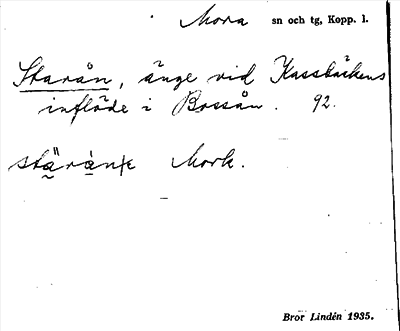 Mora sn och tg, Kopp. l.
Starån, änge vid Kassbäckens
inflöde i Bossån. 92.
Mork.
Bror Lindén 1935.